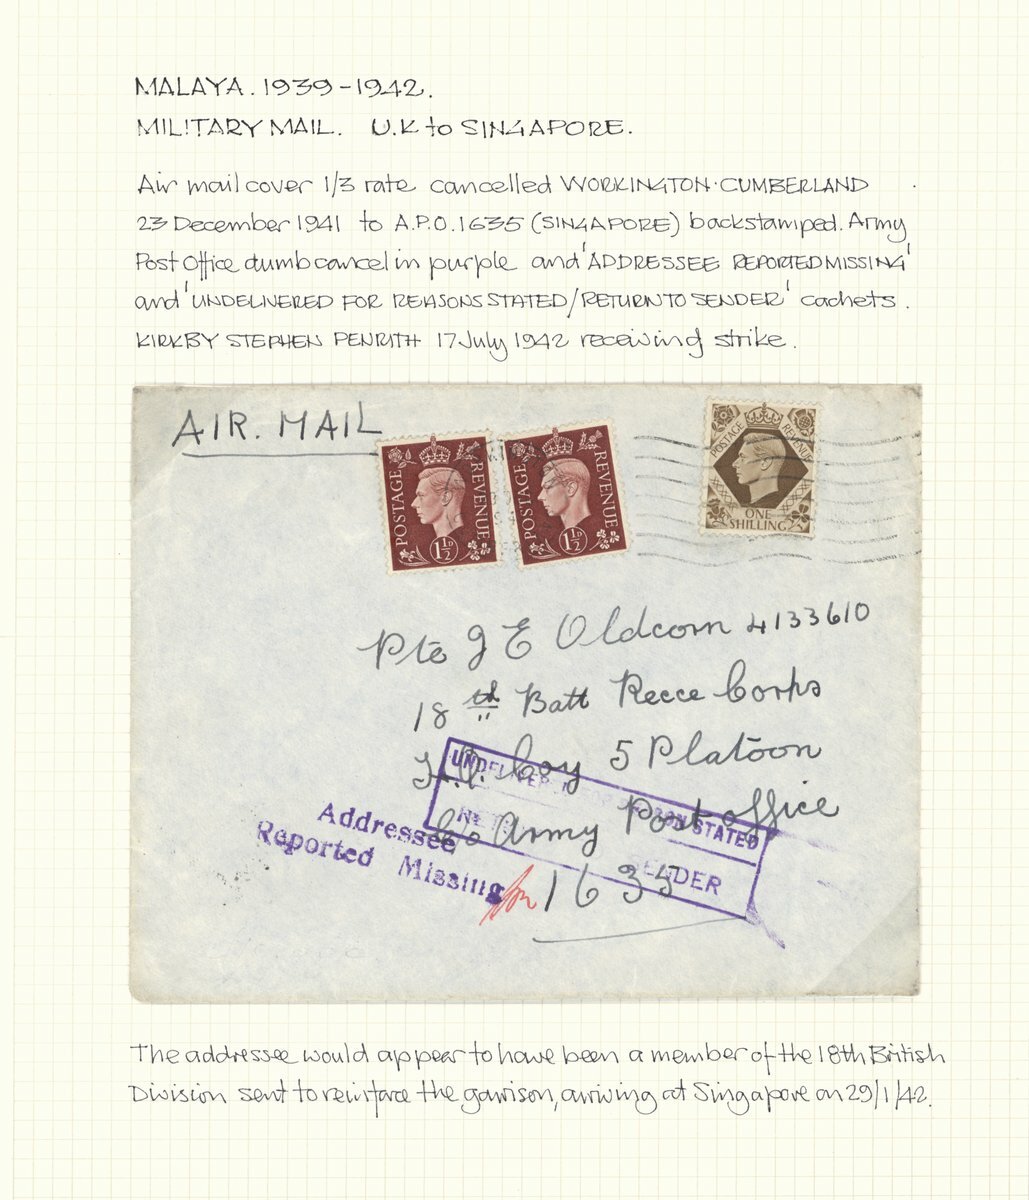 MALAYA. 1939-1942.
MILITARY MAIL. U.K to SINGAPORE.
Air mail cover 1/3 rate cancelled WORKINGTON·CUMBERLAND
23 December 1941 to A.P.O. 1635 (SINGAPORE) backstamped. Army
Post Office dumb cancel in purple and 'ADDRESSEE REPORTED MISSING'
and 'UNDELIVERED FOR REASONS STATED/RETURN TO SENDER' cachets.
KIRKBY STEPHEN PENRITH 17 July 1942 receiving strike.
AIR. MAIL
POSTAGE REVENUE
1½D
POSTAGE REVENUE
1½D
POSTAGE REVENUE
ONE
SHILLING
Pte J E Oldcorn 4133610
18th Batt Recce Corps
Coy 5 Platoon
c/o Army Post office
1635
UNDELIVERED FOR REASON STATED
SENDER
Addressee
Reported Missing
The addressee would appear to have been a member of the 18th British
Division sent to reinforce the garrison, arriving at Singapore on 29/1/42.